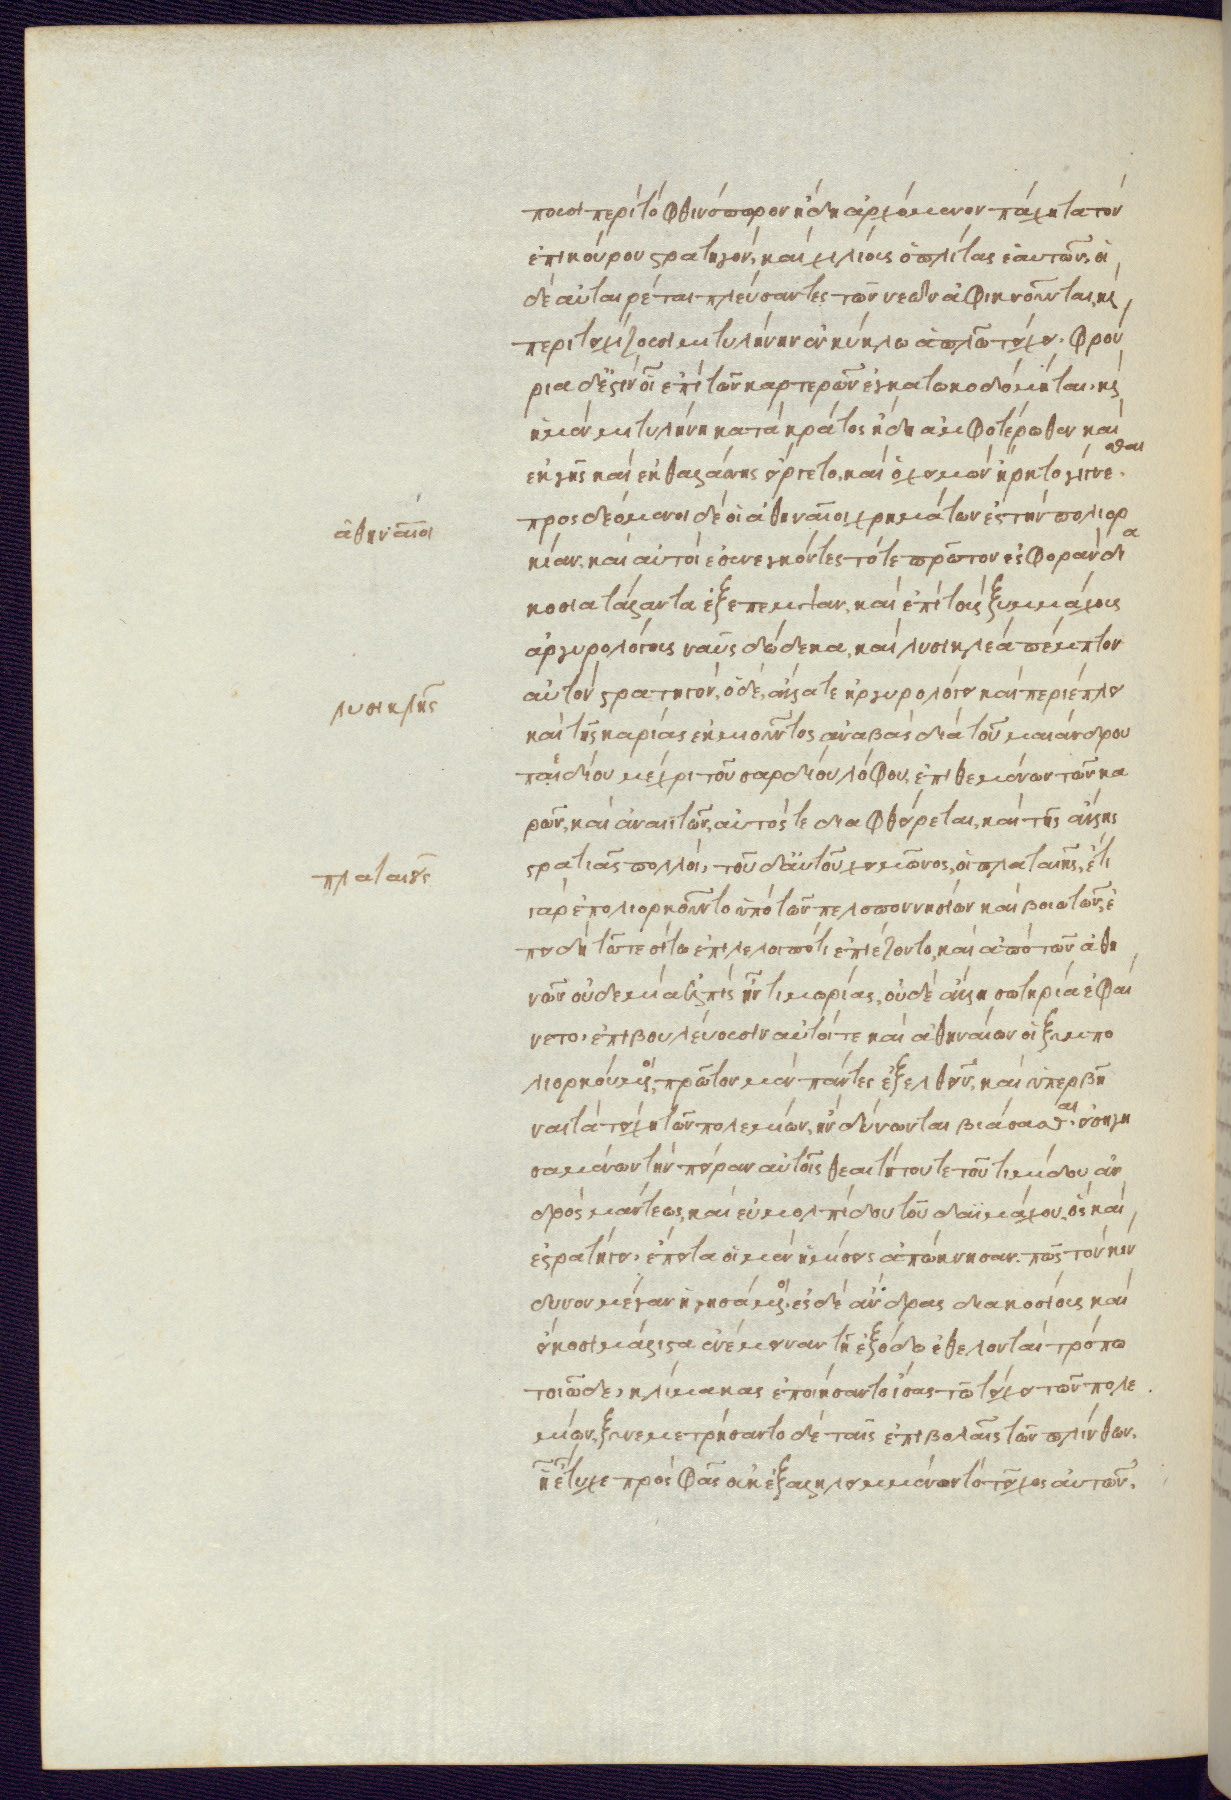 πουσι περὶ τὸ φθινόπωρον ἤδη ἀρχόμενον πάχητα τὸν
ἐπικούρου στρατηγόν, καὶ χιλίους ὁπλίτας ἑαυτῶν. οἱ
δὲ αὐταιρέται πλεύσαντες τῶν νεῶν ἀφικνοῦνται, καὶ
περιτειχίζουσι μιτυλήνην ἐν κύκλω ἁπλῶ τείχει. φρού
ρια δ' ἔστιν οἷ ἐπὶ τῶν καρτερῶν ἐγκατωκοδόμηται. καὶ
ἡ μὲν μιτυλήνη κατὰ κράτος ἤδη ἀμφοτέρωθεν καὶ
ἐκ γῆς καὶ ἐκ θαλάσσης εἴργετο, καὶ ὁ χειμὼν ἤρχετο γίγνεσθαι.
ἀθηναῖοι
προσδεόμενοι δὲ οἱ ἀθηναῖοι χρημάτων ἐς τὴν πολιορ
κίαν, καὶ αὐτοὶ ἐσενεγκόντες τότε πρῶτον ἐσφορὰν δια
κόσια τάλαντα ἐξέπεμψαν, καὶ ἐπὶ τοὺς ξυμμάχους
ἀργυρολόγους ναῦς δώδεκα, καὶ λυσικλέα πέμπτον
λυσικλῆς
αὐτὸν στρατηγόν, ὁ δὲ, ἄλλα τε ἠργυρολόγει καὶ περιέπλει
καὶ τῆς καρίας ἐκ μιοῦντος ἀναβὰς διὰ τοῦ μαιάνδρου
παιδίου μέχρι τοῦ σανδίου λόφου, ἐπιθεμένων τῶν κα
ρῶν, καὶ ἀναιιτῶν, αὐτός τε διαφθείρεται, καὶ τῆς ἄλλης
στρατιᾶς πολλοί. τοῦ δ' αὐτοῦ χειμῶνος, οἱ πλαταιῆς, ἔτι
πλαταιῆς
γὰρ ἐπολιορκοῦντο ὑπὸ τῶν πελοποννησίων καὶ βοιωτῶν, ἐ
πειδὴ τῶ τε σίτω ἐπιλελοιπότι ἐπιέζοντο, καὶ ἀπὸ τῶν ἀθη
νῶν οὐδεμία ἐλπὶς ἦν τιμωρίας, οὐδὲ ἄλλη σωτηρία ἐφαί
νετο, ἐπιβουλεύουσιν αὐτοί τε καὶ ἀθηναίων οἱ ξυμπο
λιορκούμενοι, πρῶτον μὲν πάντες ἐξελθεῖν, καὶ ὑπερβῆ
ναι τὰ τείχη τῶν πολεμίων, ἢν δύνωνται βιάσασθαι. ἐσηγη
σαμένων τὴν πεῖραν αὐτοῖς θεαιτήτου τε τοῦ τιμίδου ἀν
δρὸς μάντεως, καὶ εὐμολπίδου τοῦ δαϊμάχου, ὃς καὶ
ἐστρατήγει. ἔπειτα οἱ μὲν ἡμίσεις ἀπώκνησαν. πῶς τὸν κίν
δυνον μέγαν ἡγησάμενοι. ἐς δὲ ἄνδρας διακοσίους καὶ
εἴκοσι μάλιστα ἐνέμειναν τῆ ἐξόδω ἐθελονταὶ τρόπω
τοιῶδε, κλίμακας ἐποιήσαντο ἴσας τῶ τείχει τῶν πολε
μίων, ξυνεμετρήσαντο δὲ ταῖς ἐπιβολαῖς τῶν πλίνθων,
ἧ ἔτυχε πρὸς σφᾶς οὐκ ἐξαληλειμμένον τὸ τεῖχος αὐτῶν.